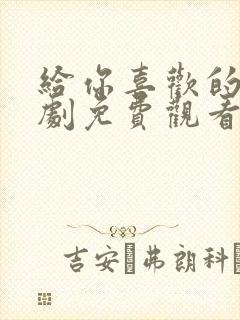 給你喜歡的
劇免費觀看
吉安 弗朗科